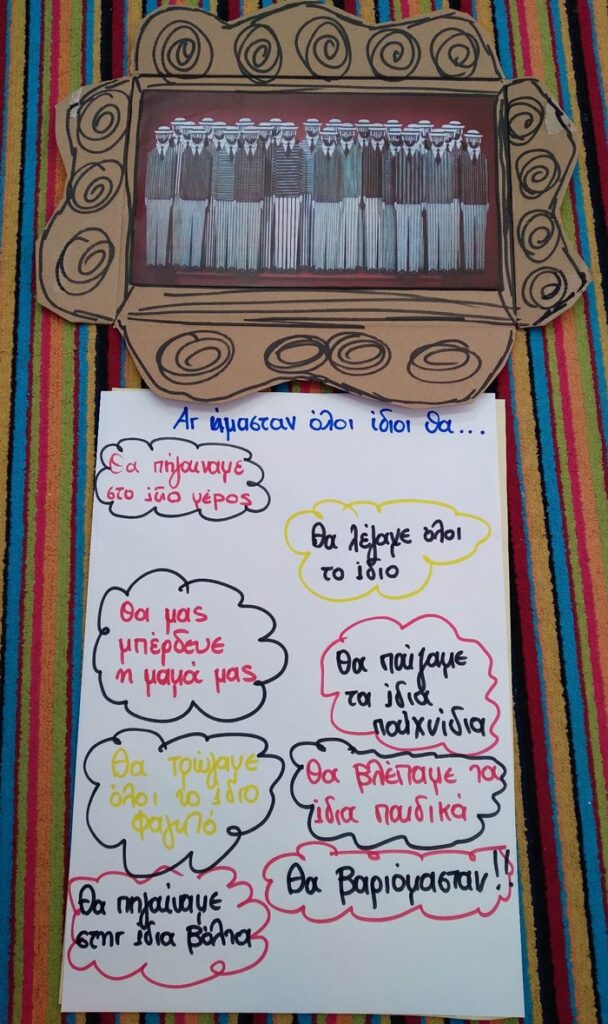 Αν ήμασταν όλοι ίδιοι θα...
Θα πηγαίναμε
στο ίδιο μέρος
Θα λέγαμε όλοι
το ίδιο
Θα μας
μπέρδευε
η μαμά μας
Θα παίζαμε
τα ίδια
παιχνίδια
Θα τρώγαμε
όλοι το ίδιο
φαγητό
Θα βλέπαμε τα
ίδια παιδικά
Θα πηγαίναμε
στην ίδια βόλτα
Θα βαριόμασταν!!